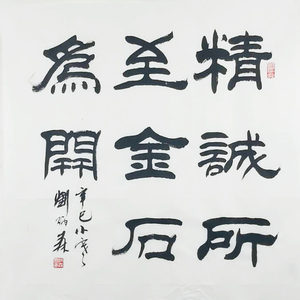 精誠所
至金石
為開
辛巳小寒
劉炳森